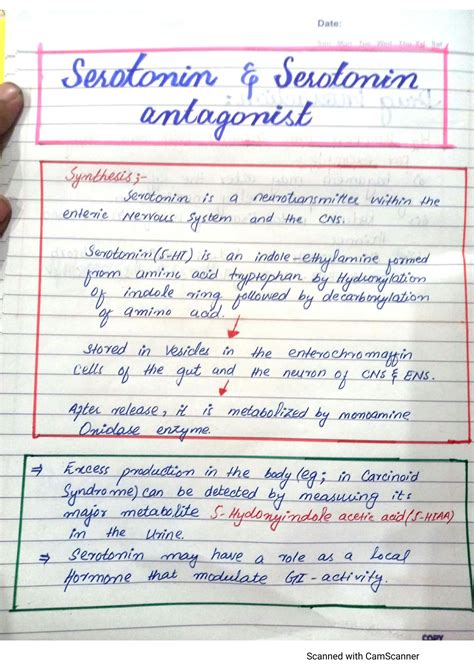 Date:
Serotonin & Serotonin
antagonist
Synthesis:-
Serotonin is a neurotransmitter within the
enteric Nervous System and the CNS.
Serotonin (5-HT) is an indole-ethylamine formed
from amino acid tryptophan by Hydroxylation
of indole ring followed by decarboxylation
of amino acid.
Stored in vesicles in the enterochromaffin
cells of the gut and the neuron of CNS & ENS.
After release, it is metabolized by monoamine
Oxidase enzyme.
⇒ Excess production in the body (eg; in Carcinoid
Syndrome) can be detected by measuring its
major metabolite 5-Hydroxyindole acetic acid (5-HIAA)
in the Urine.
⇒ Serotonin may have a role as a local
Hormone that modulate GI-activity.
COPY
Scanned with CamScanner